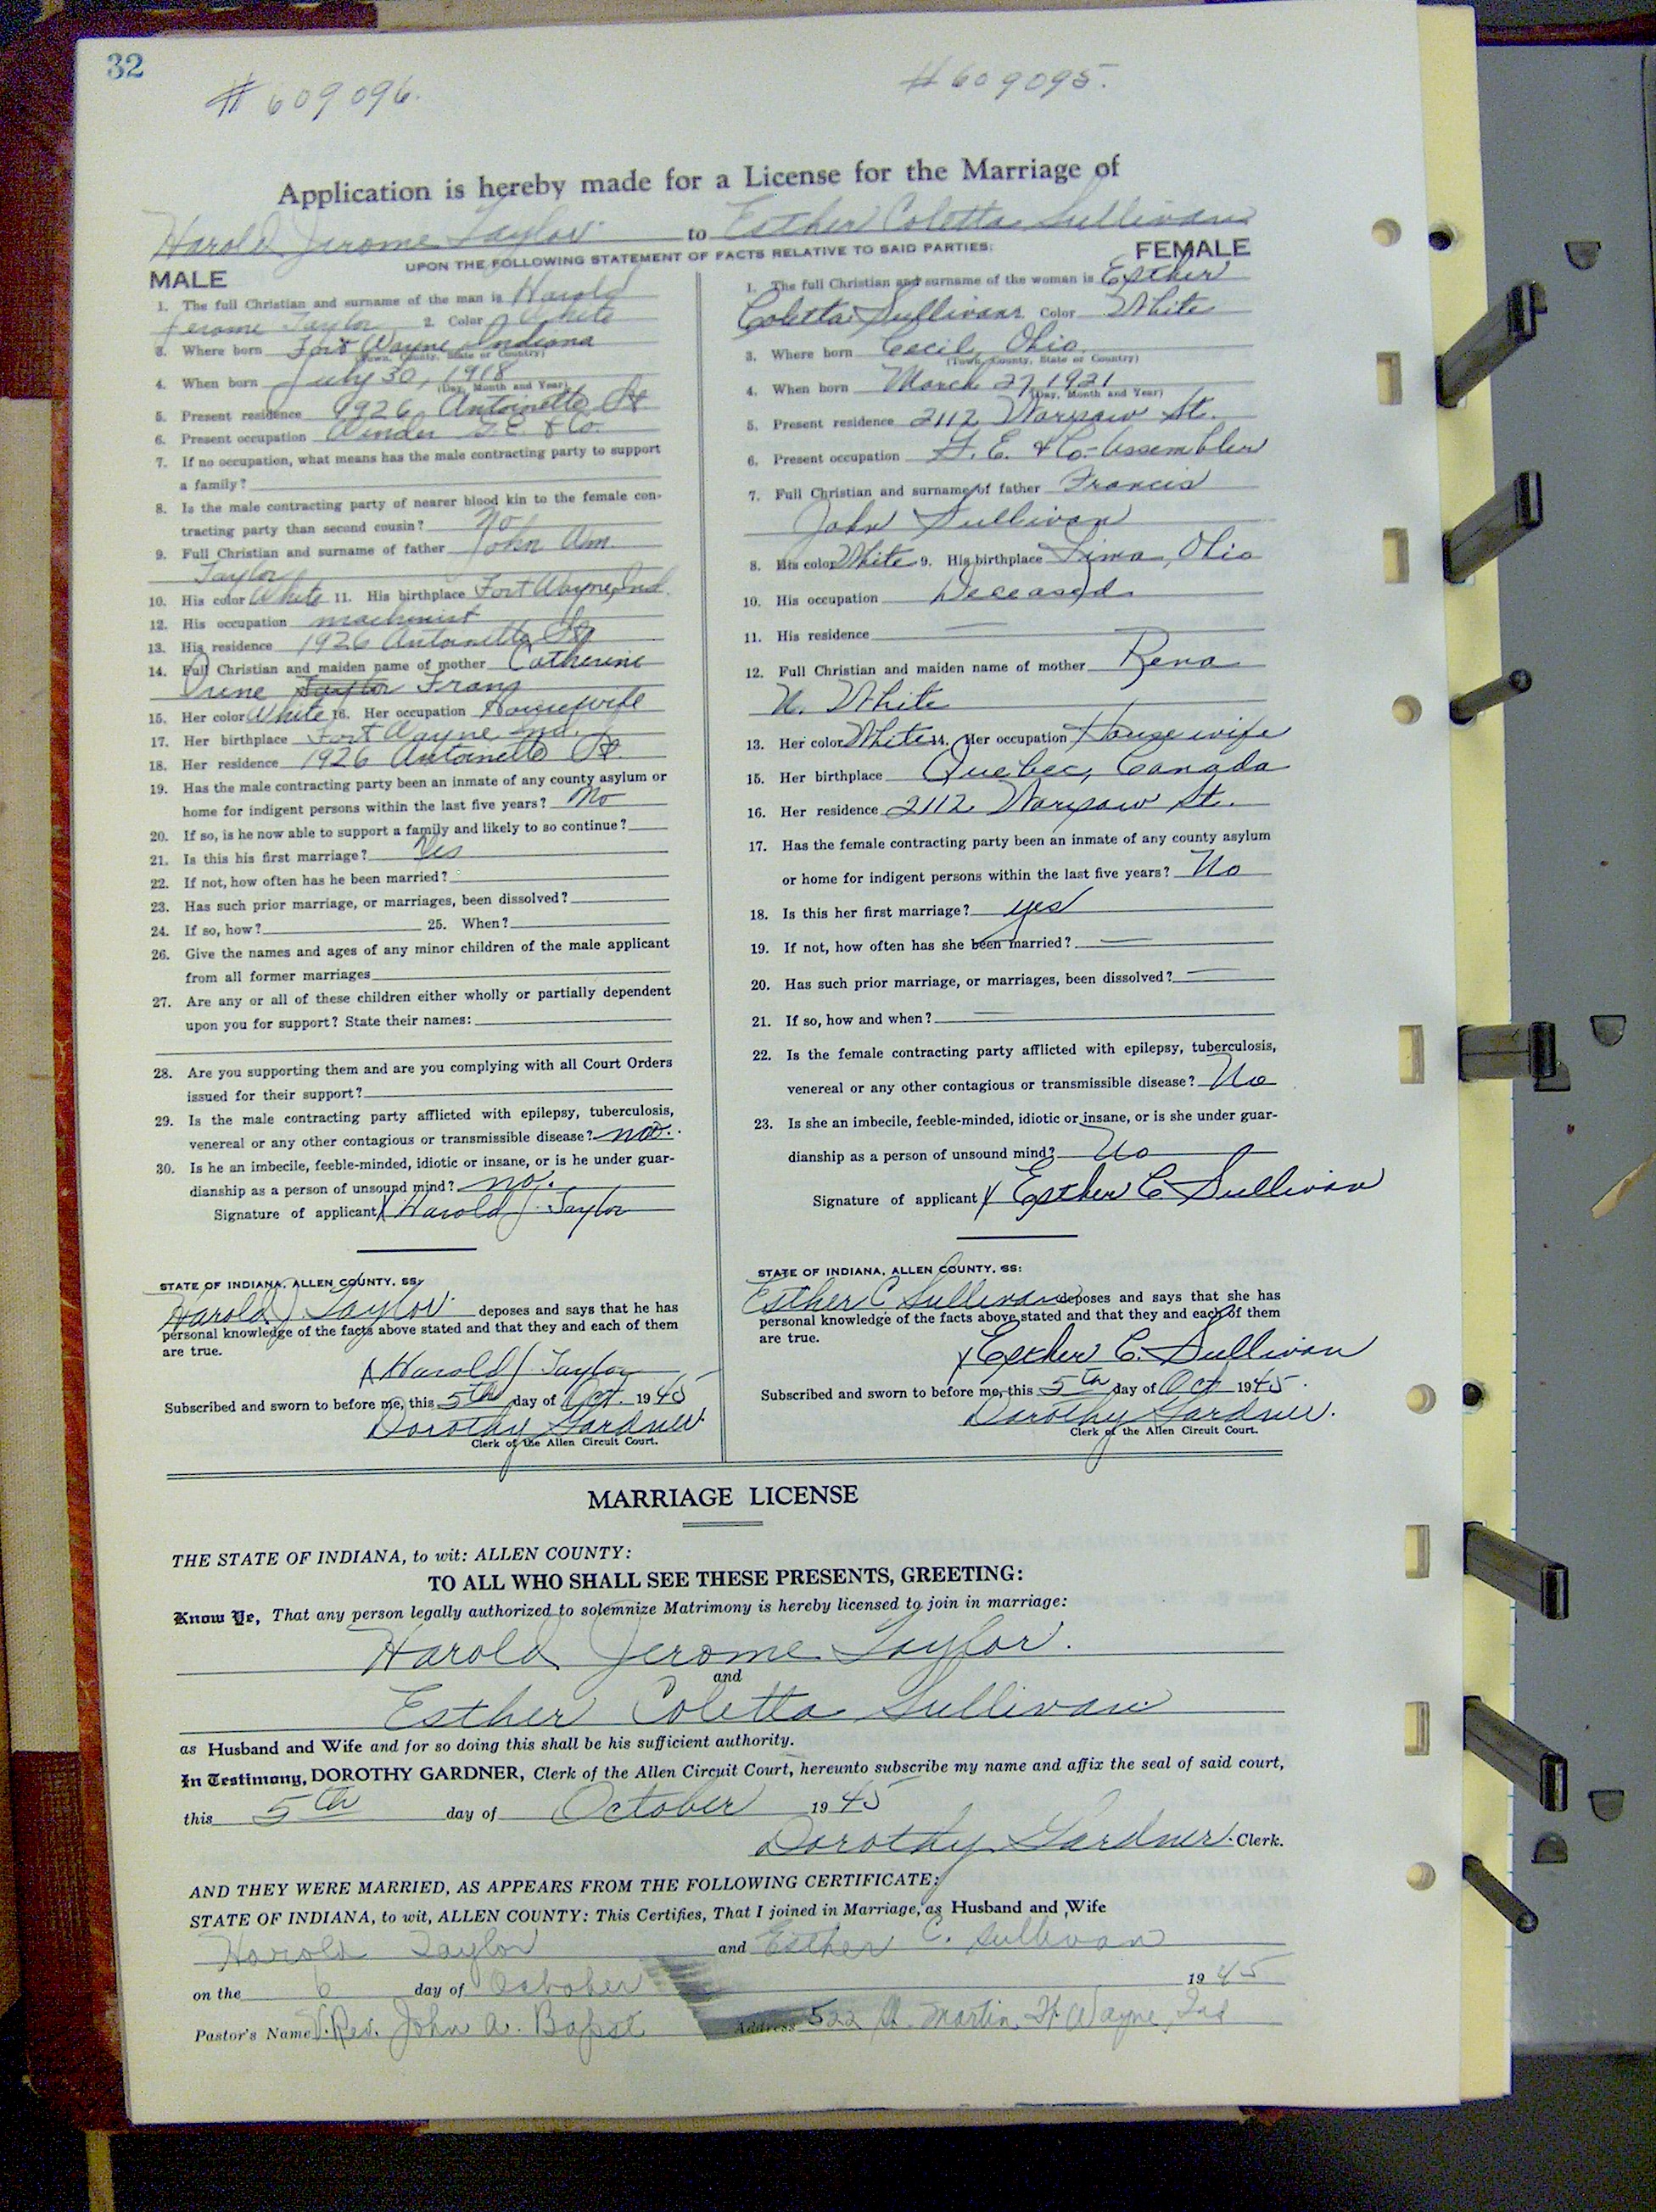 32
# 609096.
# 609095.
Application is hereby made for a License for the Marriage of
Harold Jerome Taylor to Esther Coletta Sullivan
UPON THE FOLLOWING STATEMENT OF FACTS RELATIVE TO SAID PARTIES:
MALE
1. The full Christian and surname of the man is Harold
Jerome Taylor 2. Color White
3. Where born Fort Wayne Indiana
(Town, County, State or Country)
4. When born July 30, 1918
(Day, Month and Year)
5. Present residence 1926 Antoinette St
6. Present occupation Winder G.E. & Co.
7. If no occupation, what means has the male contracting party to support
a family?
8. Is the male contracting party of nearer blood kin to the female con-
tracting party than second cousin? No
9. Full Christian and surname of father John Wm.
Taylor
10. His color White 11. His birthplace Fort Wayne, Ind.
12. His occupation machinist
13. His residence 1926 Antoinette St
14. Full Christian and maiden name of mother Catherine
Irene Taylor Franz
15. Her color White 16. Her occupation Housewife
17. Her birthplace Fort Wayne, Ind.
18. Her residence 1926 Antoinette St.
19. Has the male contracting party been an inmate of any county asylum or
home for indigent persons within the last five years? No
20. If so, is he now able to support a family and likely to so continue?
21. Is this his first marriage? Yes
22. If not, how often has he been married?
23. Has such prior marriage, or marriages, been dissolved?
24. If so, how? 25. When?
26. Give the names and ages of any minor children of the male applicant
from all former marriages
27. Are any or all of these children either wholly or partially dependent
upon you for support? State their names:
28. Are you supporting them and are you complying with all Court Orders
issued for their support?
29. Is the male contracting party afflicted with epilepsy, tuberculosis,
venereal or any other contagious or transmissible disease? no.
30. Is he an imbecile, feeble-minded, idiotic or insane, or is he under guar-
dianship as a person of unsound mind? no.
Signature of applicant X Harold J. Taylor
STATE OF INDIANA, ALLEN COUNTY, SS:
Harold J. Taylor deposes and says that he has
personal knowledge of the facts above stated and that they and each of them
are true.
X Harold J Taylor
Subscribed and sworn to before me, this 5th day of Oct. 1945
Dorothy Gardner.
Clerk of the Allen Circuit Court.
FEMALE
1. The full Christian and surname of the woman is Esther
Coletta Sullivan 2. Color White
3. Where born Cecil, Ohio
(Town, County, State or Country)
4. When born March 27 1921
(Day, Month and Year)
5. Present residence 2112 Warsaw St.
6. Present occupation G. E. & Co-Assembler
7. Full Christian and surname of father Francis
John Sullivan
8. His color White 9. His birthplace Lima, Ohio
10. His occupation Deceased
11. His residence —
12. Full Christian and maiden name of mother Rena
N. White
13. Her color White 14. Her occupation Housewife
15. Her birthplace Quebec, Canada
16. Her residence 2112 Warsaw St.
17. Has the female contracting party been an inmate of any county asylum
or home for indigent persons within the last five years? No
18. Is this her first marriage? yes
19. If not, how often has she been married? —
20. Has such prior marriage, or marriages, been dissolved? —
21. If so, how and when? —
22. Is the female contracting party afflicted with epilepsy, tuberculosis,
venereal or any other contagious or transmissible disease? No
23. Is she an imbecile, feeble-minded, idiotic or insane, or is she under guar-
dianship as a person of unsound mind? No
Signature of applicant X Esther C Sullivan
STATE OF INDIANA, ALLEN COUNTY, SS:
Esther C Sullivan deposes and says that she has
personal knowledge of the facts above stated and that they and each of them
are true.
X Esther C. Sullivan
Subscribed and sworn to before me, this 5th day of Oct 1945.
Dorothy Gardner.
Clerk of the Allen Circuit Court.
MARRIAGE LICENSE
THE STATE OF INDIANA, to wit: ALLEN COUNTY:
TO ALL WHO SHALL SEE THESE PRESENTS, GREETING:
Know Ye, That any person legally authorized to solemnize Matrimony is hereby licensed to join in marriage:
Harold Jerome Taylor.
and
Esther Coletta Sullivan
as Husband and Wife and for so doing this shall be his sufficient authority.
In Testimony, DOROTHY GARDNER, Clerk of the Allen Circuit Court, hereunto subscribe my name and affix the seal of said court,
this 5th day of October 1945
Dorothy Gardner. Clerk.
AND THEY WERE MARRIED, AS APPEARS FROM THE FOLLOWING CERTIFICATE:
STATE OF INDIANA, to wit, ALLEN COUNTY: This Certifies, That I joined in Marriage, as Husband and Wife
Harold Taylor and Esther C. Sullivan
on the 6 day of October 1945
Pastor's Name V. Rev. John A. Bapst Address 522 Martin Ft. Wayne, Ind